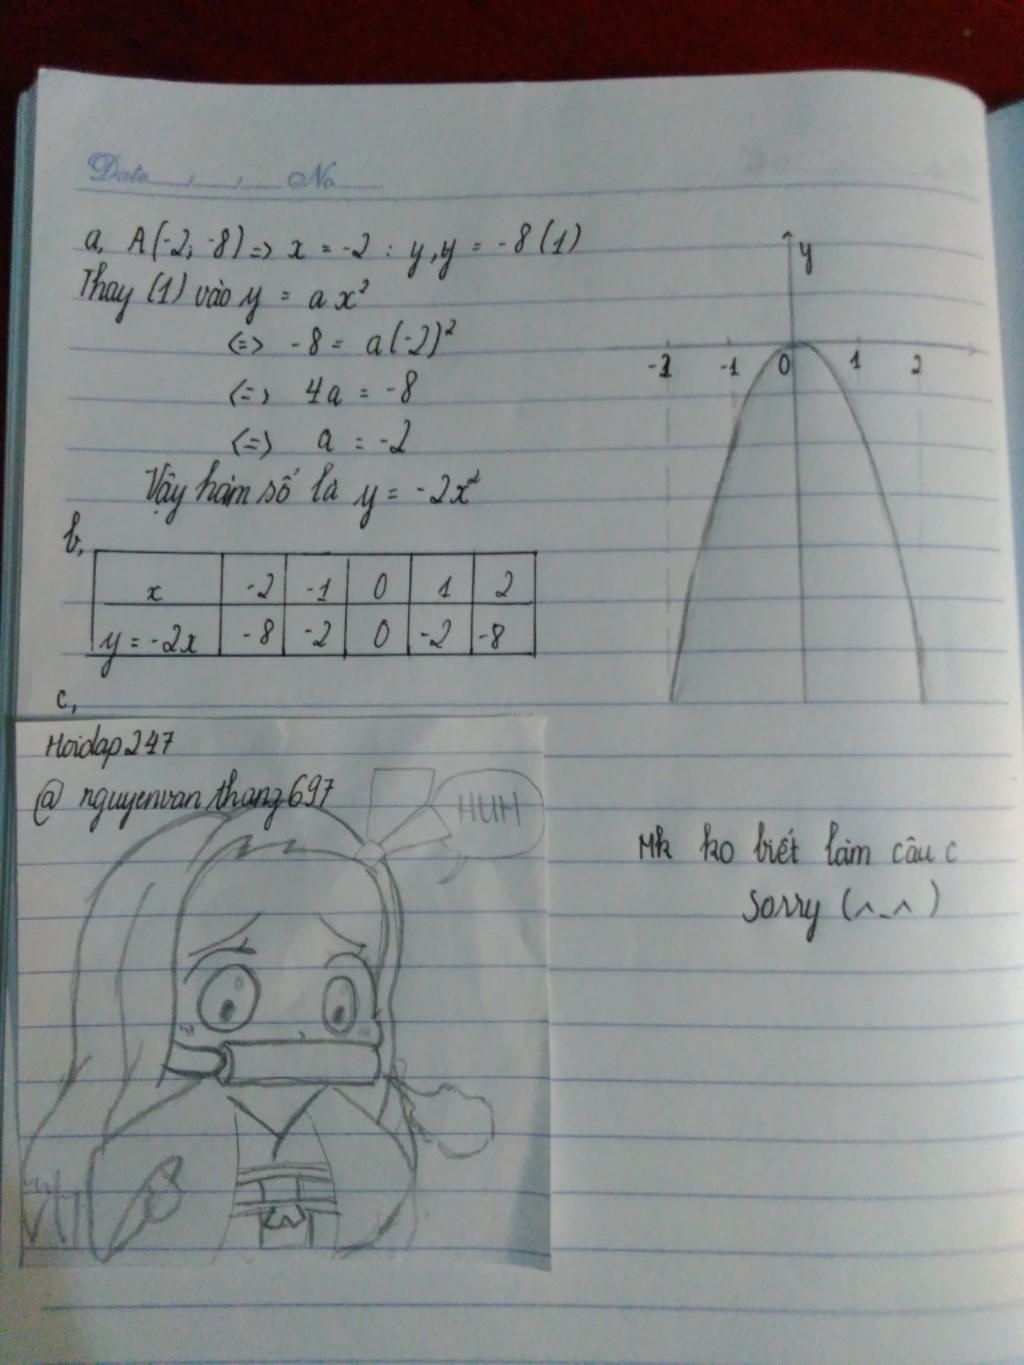 Date No
a, A(-2; -8) => x = -2 ; y, y = -8 (1)
Thay (1) vào y = ax²
<=> -8 = a(-2)²
<=> 4a = -8
<=> a = -2
Vậy hàm số là y = -2x²
y
-2 -1 0 1 2
b,
x -2 -1 0 1 2
y = -2x -8 -2 0 -2 -8
c,
Hoidap247
@ nguyenvanthang697
HUH
Mk ko biết làm câu c
Sorry (^_^)